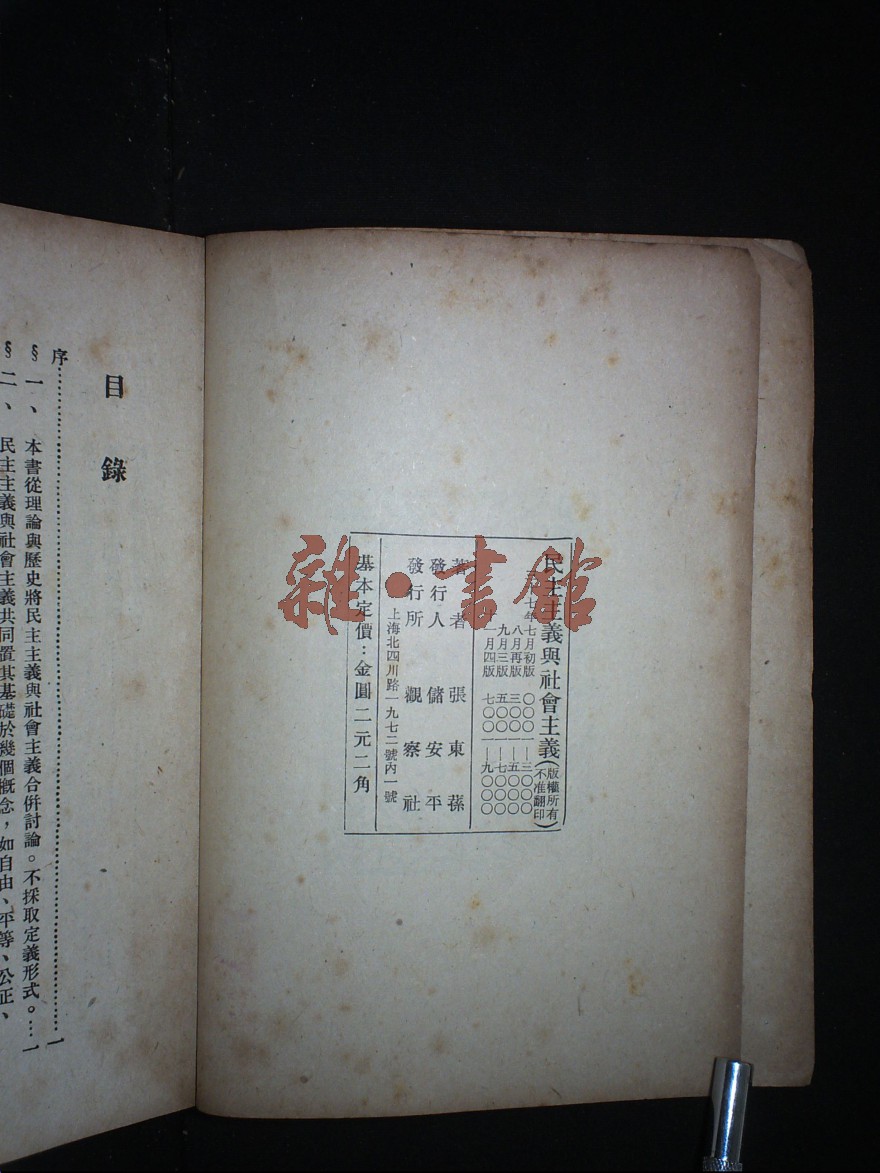 民主主義與社會主義(版權所有不准翻印)
七年七月初版 〇〇〇一—三〇〇〇
八月再版 三〇〇一—五〇〇〇
九月三版 五〇〇一—七〇〇〇
月四版 七〇〇一—九〇〇〇
著者 張東蓀
發行人 儲安平
發行所 觀察社
上海北四川路一九七二號內一號
基本定價:金圓二元二角
雜·書館
目錄
序……一
§一、本書從理論與歷史將民主主義與社會主義合併討論。不採取定義形式。…一
§二、民主主義與社會主義共同置其基礎於幾個概念,如自由、平等、公正、